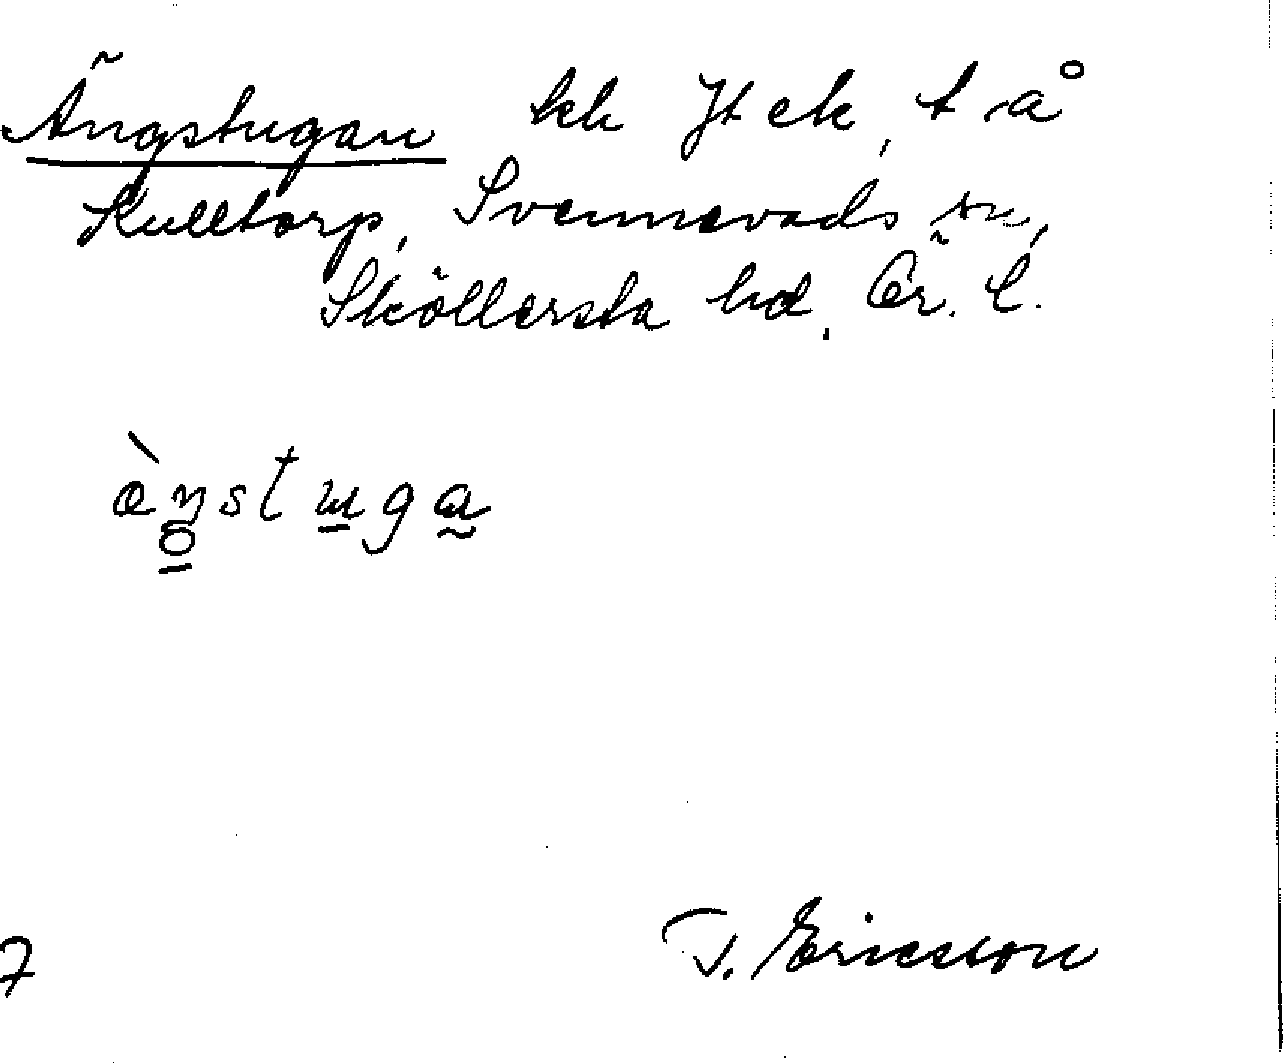 Ängstugan lkh Jt ek, t å
Kulltorp, Svennevads sn,
Sköllersta hd, Ör. l.
T. Ericsson
7